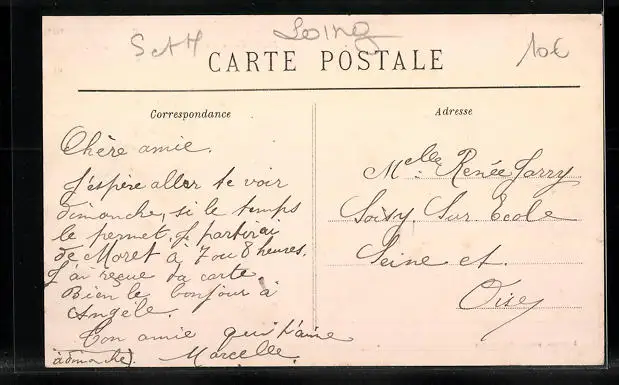 S et M
Loing
10€
CARTE POSTALE
Correspondance
Adresse
Chère amie.
J'espère aller te voir
dimanche, si le temps
le permet, je partirai
de Moret à 7 ou 8 heures.
J'ai reçue ta carte.
Bien le bonjour à
Angèle.
Ton amie qui t'aime
Marcelle.
à dimanche).
Melle Renée Jarry
Soisy Sur Ecole
Seine et.
Oise